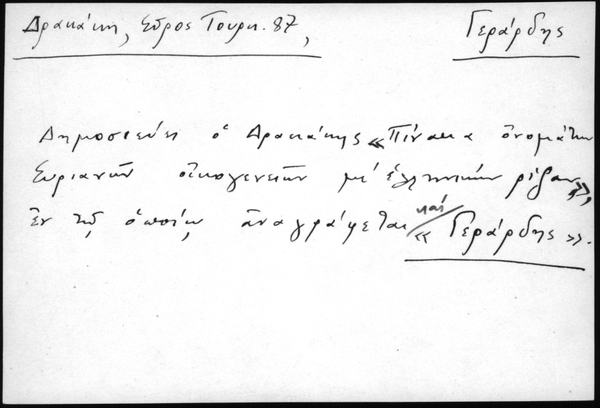 Δρακάκη, Σῦρος Τουρκ. 87, Γεράρδης
Δημοσιεύει ὁ Δρακάκης «Πίνακα ὀνομάτων
Συριανῶν οἰκογενειῶν μέ ἑλληνικήν ρίζαν»,
ἐν τῷ ὁποίῳ ἀναγράφεται καί «Γεράρδης».